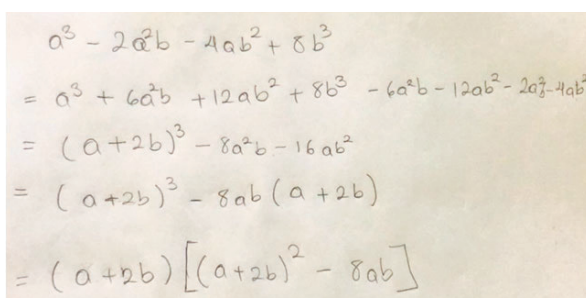 a³ - 2a²b - 4ab² + 8b³
= a³ + 6a²b + 12ab² + 8b³ - 6a²b - 12ab² - 2a²b - 4ab²
= (a+2b)³ - 8a²b - 16ab²
= (a+2b)³ - 8ab(a+2b)
= (a+2b)[(a+2b)² - 8ab]